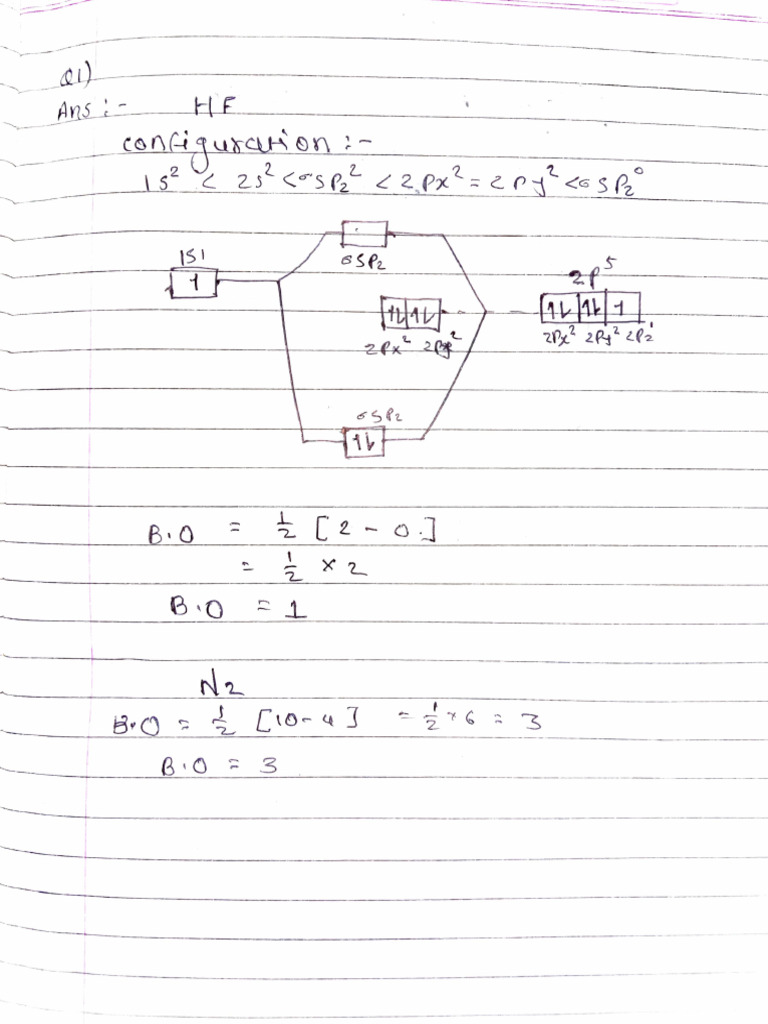 Q1)
Ans :- HF
configuration :-
1s² < 2s² < σsp₂² < 2px² = 2py² < σsp₂⁰
σsp₂
1s1
1
2p⁵
1↓ 1↓ 1
2px² 2py² 2pz¹
1↓ 1↓
2px² 2py²
σsp₂
1↓
B.O = ½ [2 - 0.]
= ½ × 2
B.O = 1
N2
B.O = ½ [10-4] = ½ × 6 = 3
B.O = 3